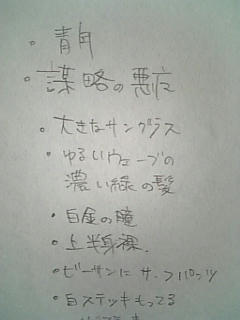 ・青年
・謀略の悪広
・大きなサングラス
・ゆるいウェーブの
濃い緑の髪
・白金の瞳
・上半身裸.
・ビーサンに サーフパンツ
・白ステッキもってる